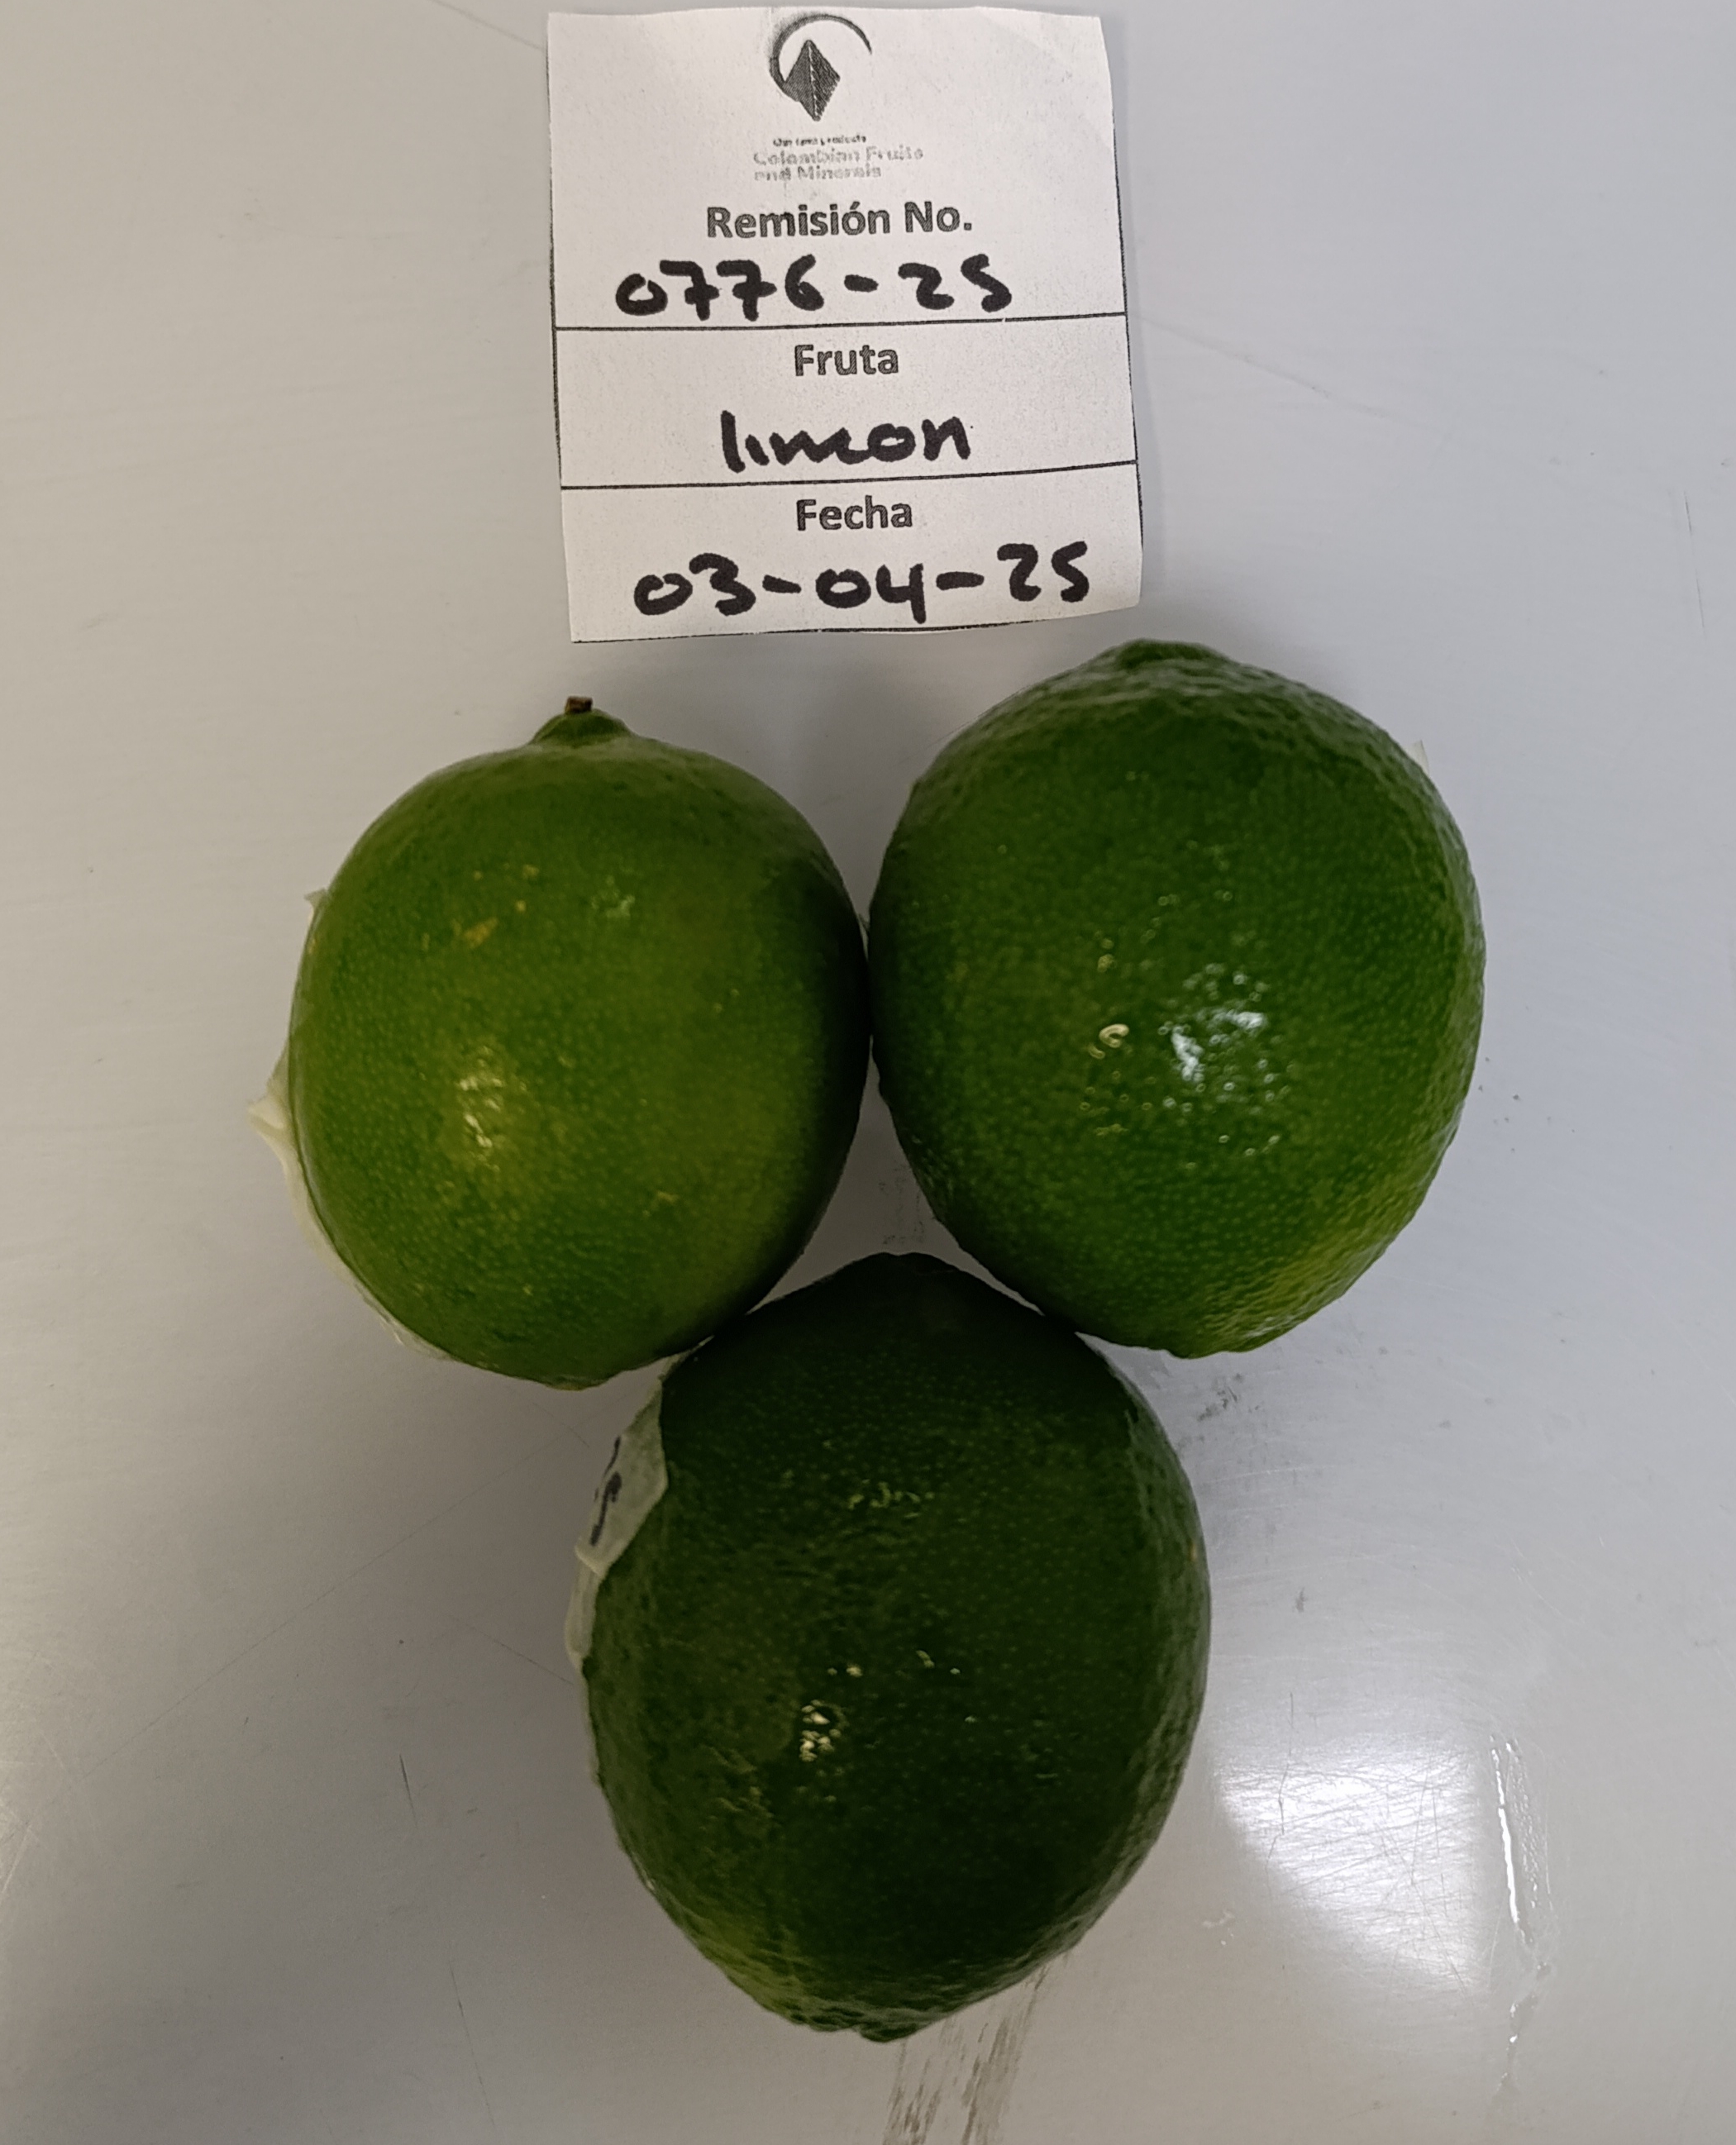 Our land products
Colombian Fruits
and Minerals
Remisión No.
0776-25
Fruta
limon
Fecha
03-04-25